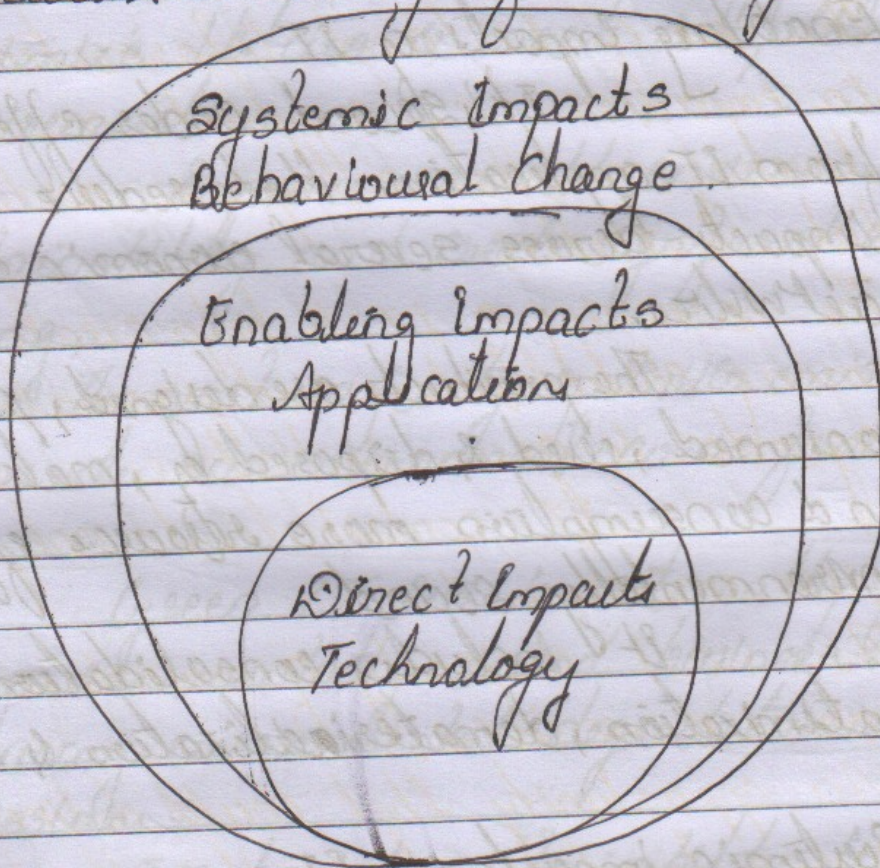 Systemic Impacts
Behavioural Change.
Enabling Impacts
Application
Direct Impacts
Technology